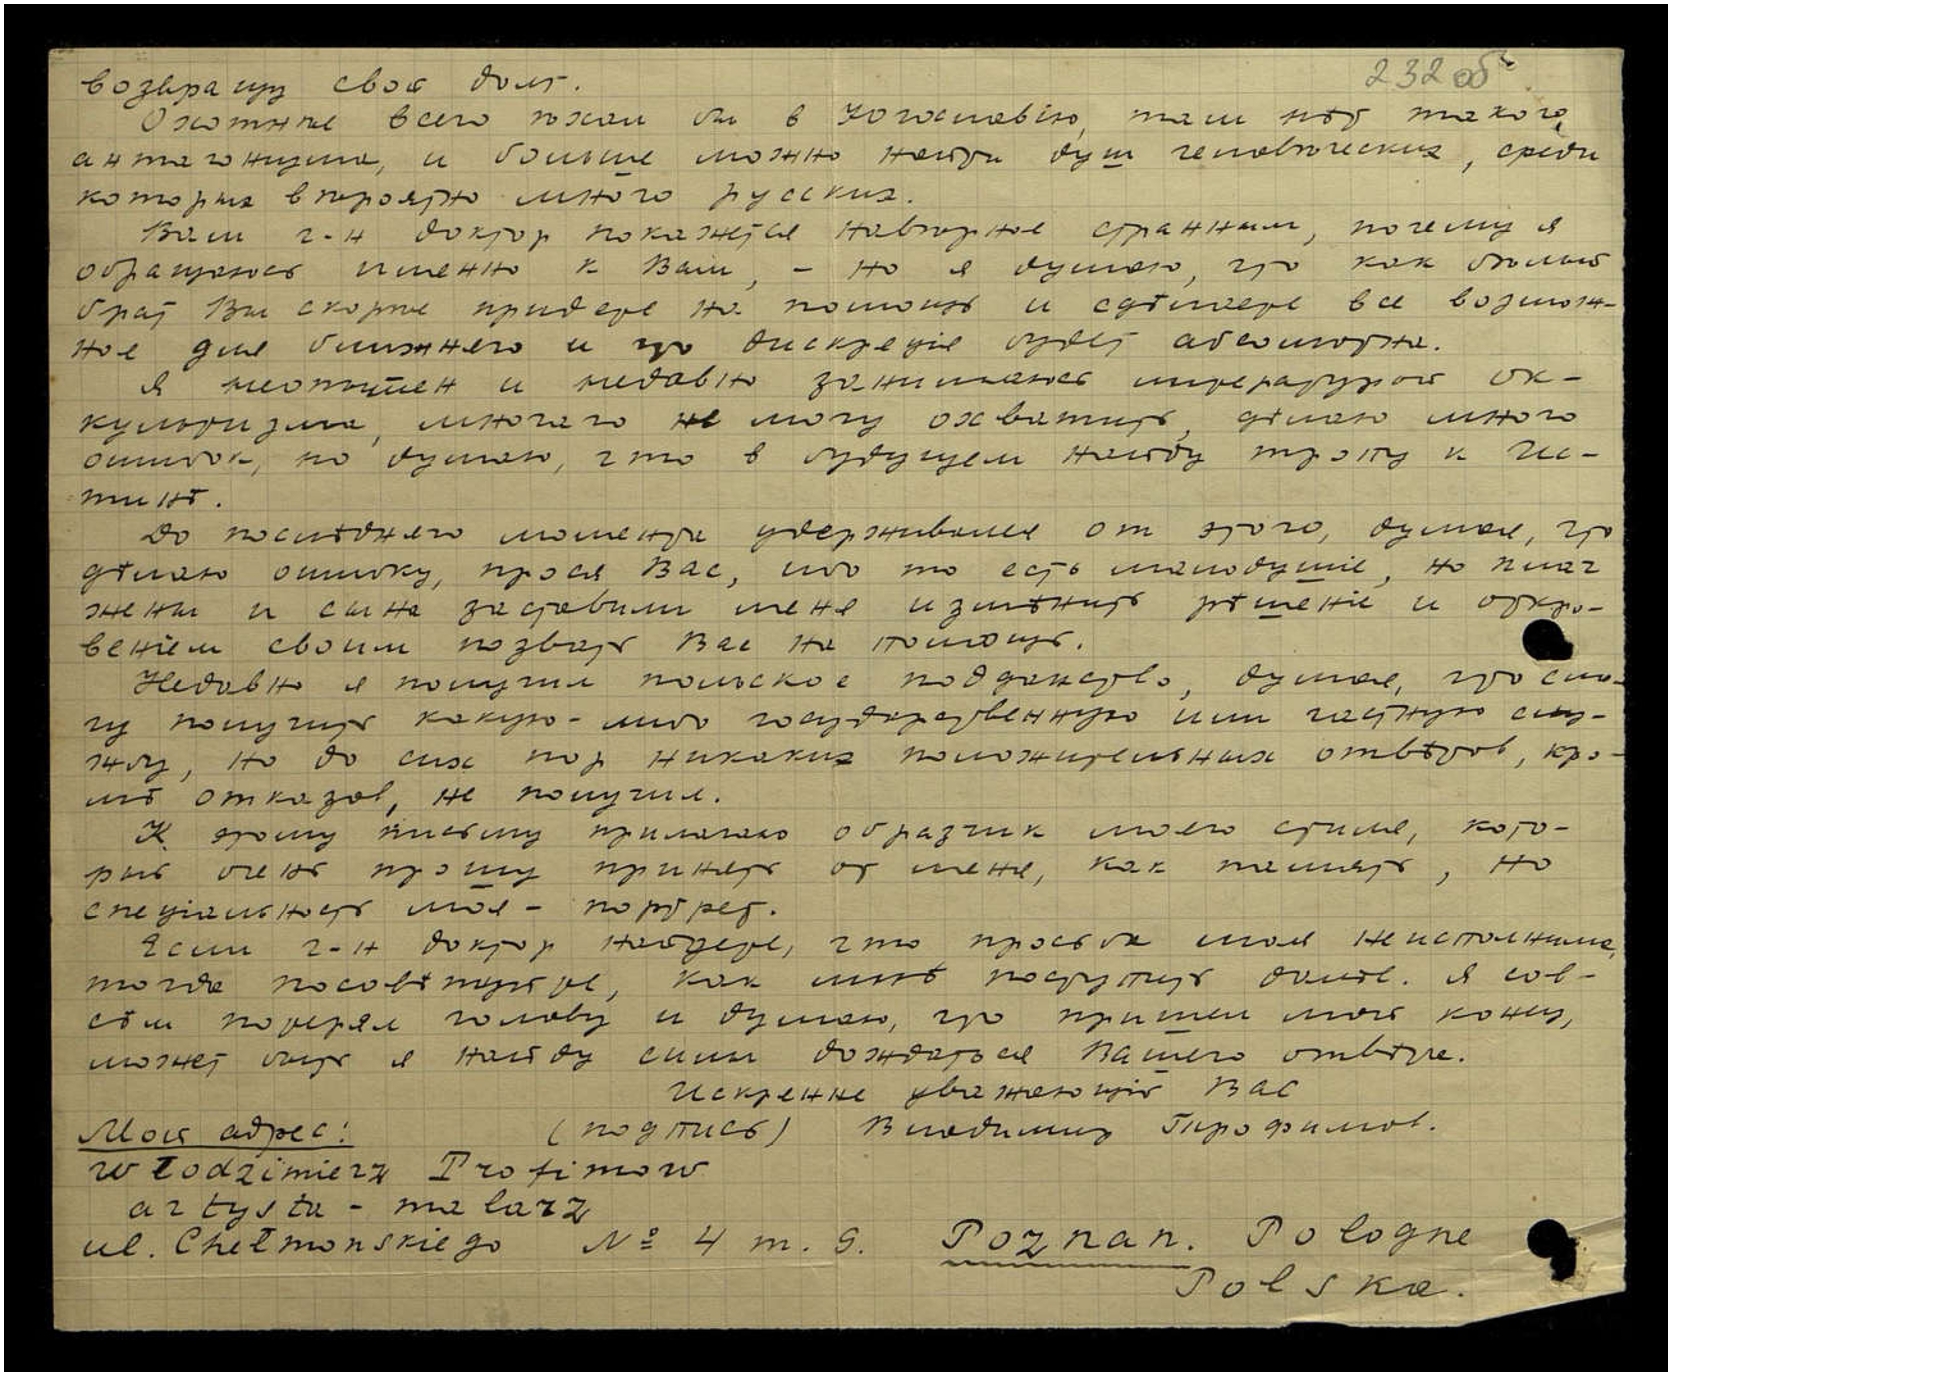 232 об
возвращу свой долг.
Охотнѣе всего поѣхал бы в Югославію, там нѣт такого
антагонизма, и больше можно найти душ человѣческих, среди
которых вѣроятно много русских.
Вам г-н доктор покажется навѣрное странным, почему я
обращаюсь именно к Вам, – но я думаю, что как бѣлый
брат Вы скорѣе придете на помощь и сдѣлаете все возмож-
ное для ближнего и что дискреція будет абсолютна.
Я неопытен и недавно занимаюсь литературой ок-
культизма, многаго не могу охватить, дѣлаю много
ошибок, но думаю, что в будущем найду тропу к Ис-
тинѣ.
До послѣдняго момента удерживался от этого, думая, что
дѣлаю ошибку, прося Вас, ибо то есть малодушіе, но плач
жены и сына заставили меня измѣнить рѣшеніе и откро-
веніем своим позвать Вас на помощь.
Недавно я получил польское подданство, думая, что смо-
гу получить какую-либо государственную или частную слу-
жбу, но до сих пор никаких положительных отвѣтов, кро-
мѣ отказов, не получил.
К этому письму прилагаю образчик моего стиля, кото-
рый очень прошу принять от меня, как память, но
спеціальность моя – портрет.
Если г-н доктор найдете, что просьба моя неисполнима,
тогда посовѣтуйте, как мнѣ поступить далѣе. Я сов-
сѣм потерял голову и думаю, что пришел мой конец,
может быть я найду силы дождаться Вашего отвѣта.
Искренне уважающій Вас
Мой адрес: (подпись) Владимир Трофимов.
Włodzimierz Trofimow
artysta - malarz
ul. Chełmonskiego № 4 m. 9. Poznan. Pologne
Polska.